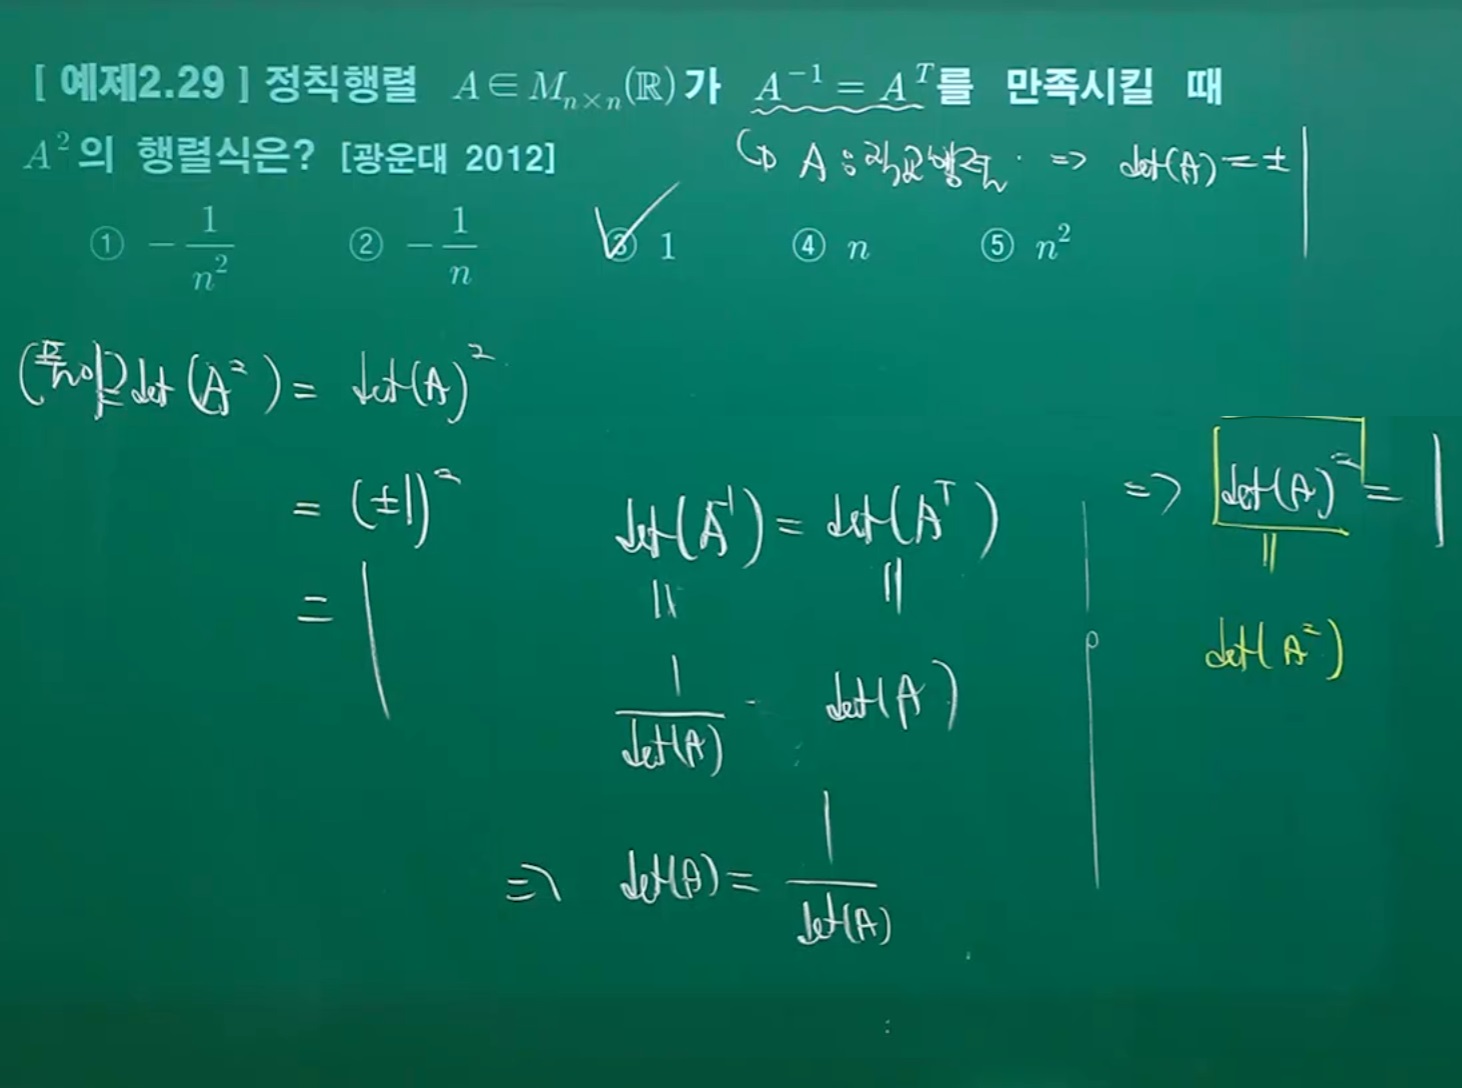 [ 예제2.29 ] 정칙행렬 A ∈ M_{n×n}(ℝ)가 A^{-1} = A^T를 만족시킬 때
A^2의 행렬식은? [광운대 2012]
↳ A : 직교행렬. ⇒ det(A) = ±1
① -1/n^2 ② -1/n ③ 1 ④ n ⑤ n^2
(풀이) det(A^2) = det(A)^2
= (±1)^2
= 1
det(A^{-1}) = det(A^T)
|| ||
1/det(A) det(A)
⇒ det(A) = 1/det(A)
⇒ det(A)^2 = 1
||
det(A^2)